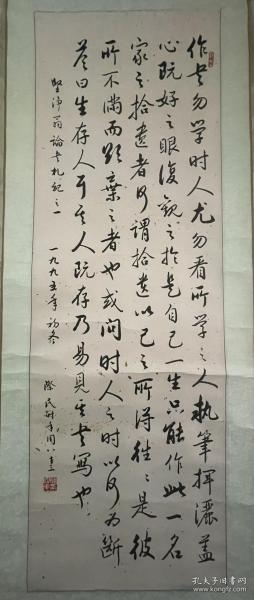 作书勿学时人尤勿看所学之人执笔挥洒盖
心既好之眼复观之于是自己一生只能作此一名
家之拾遗者何谓拾遗以己之所得往之是彼
所不满而欲弃之者也或问时人之时以何为断
答曰生存人耳其人既存乃易见其书写也
坚净翁论书札记之一 一九九五年初冬
孔夫子旧书网